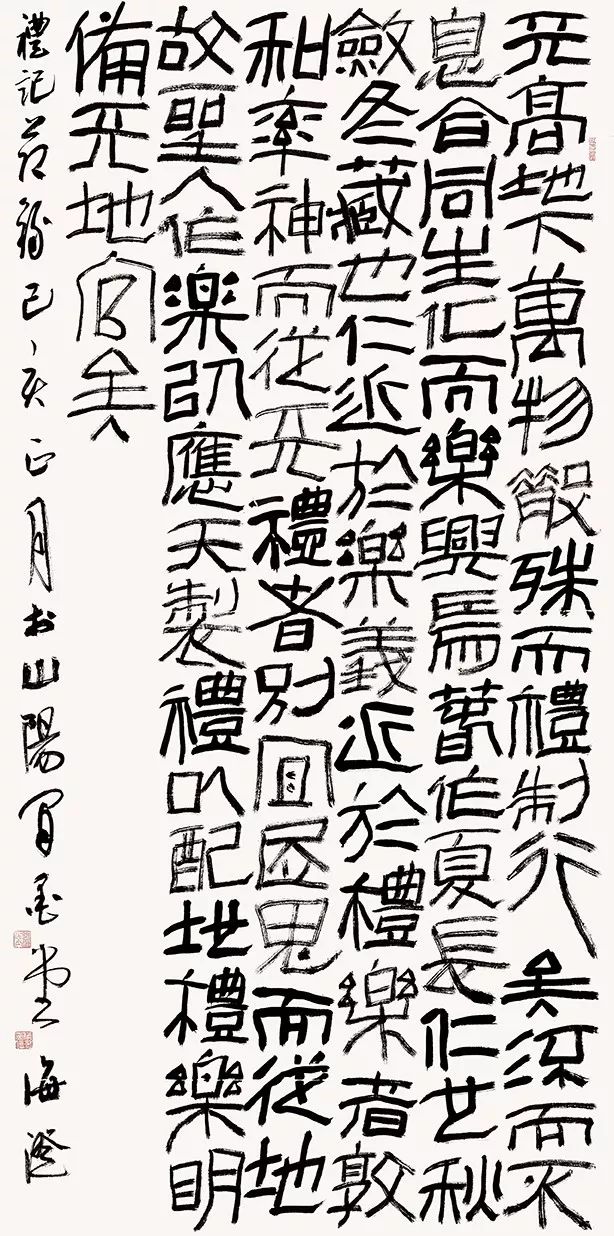 天高地下萬物散殊而禮制行矣流而不
息合同生化而樂興焉春作夏長仁也秋
斂冬藏也仁近於樂義近於禮樂者敦
和率神而從天禮者別宜居鬼而從地
故聖人作樂以應天製禮以配地禮樂明
備天地官矣
禮記節錄己亥正月於山陽堂海